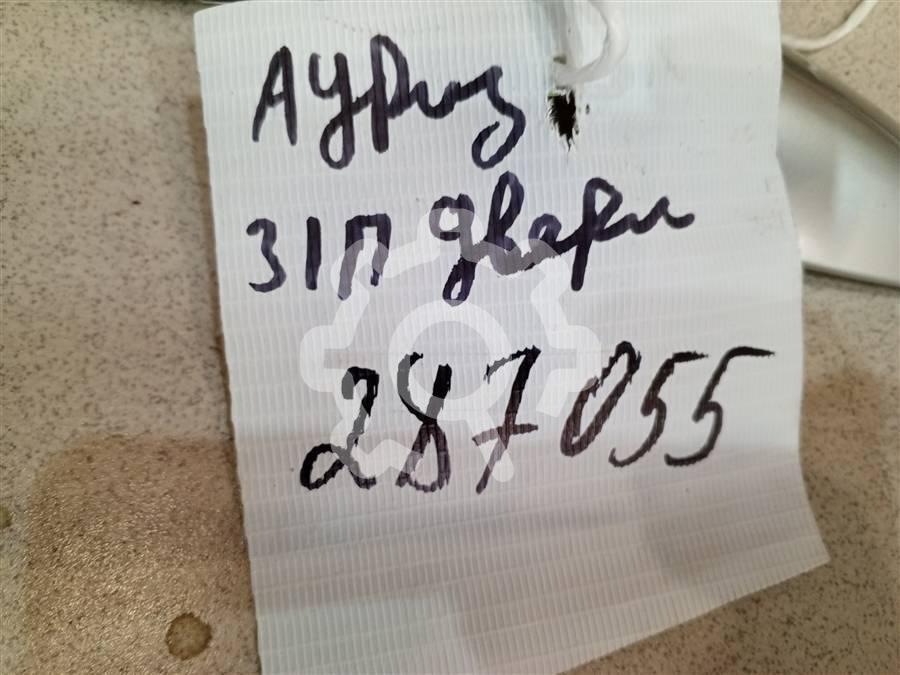 Аурис
З/П двери
287055